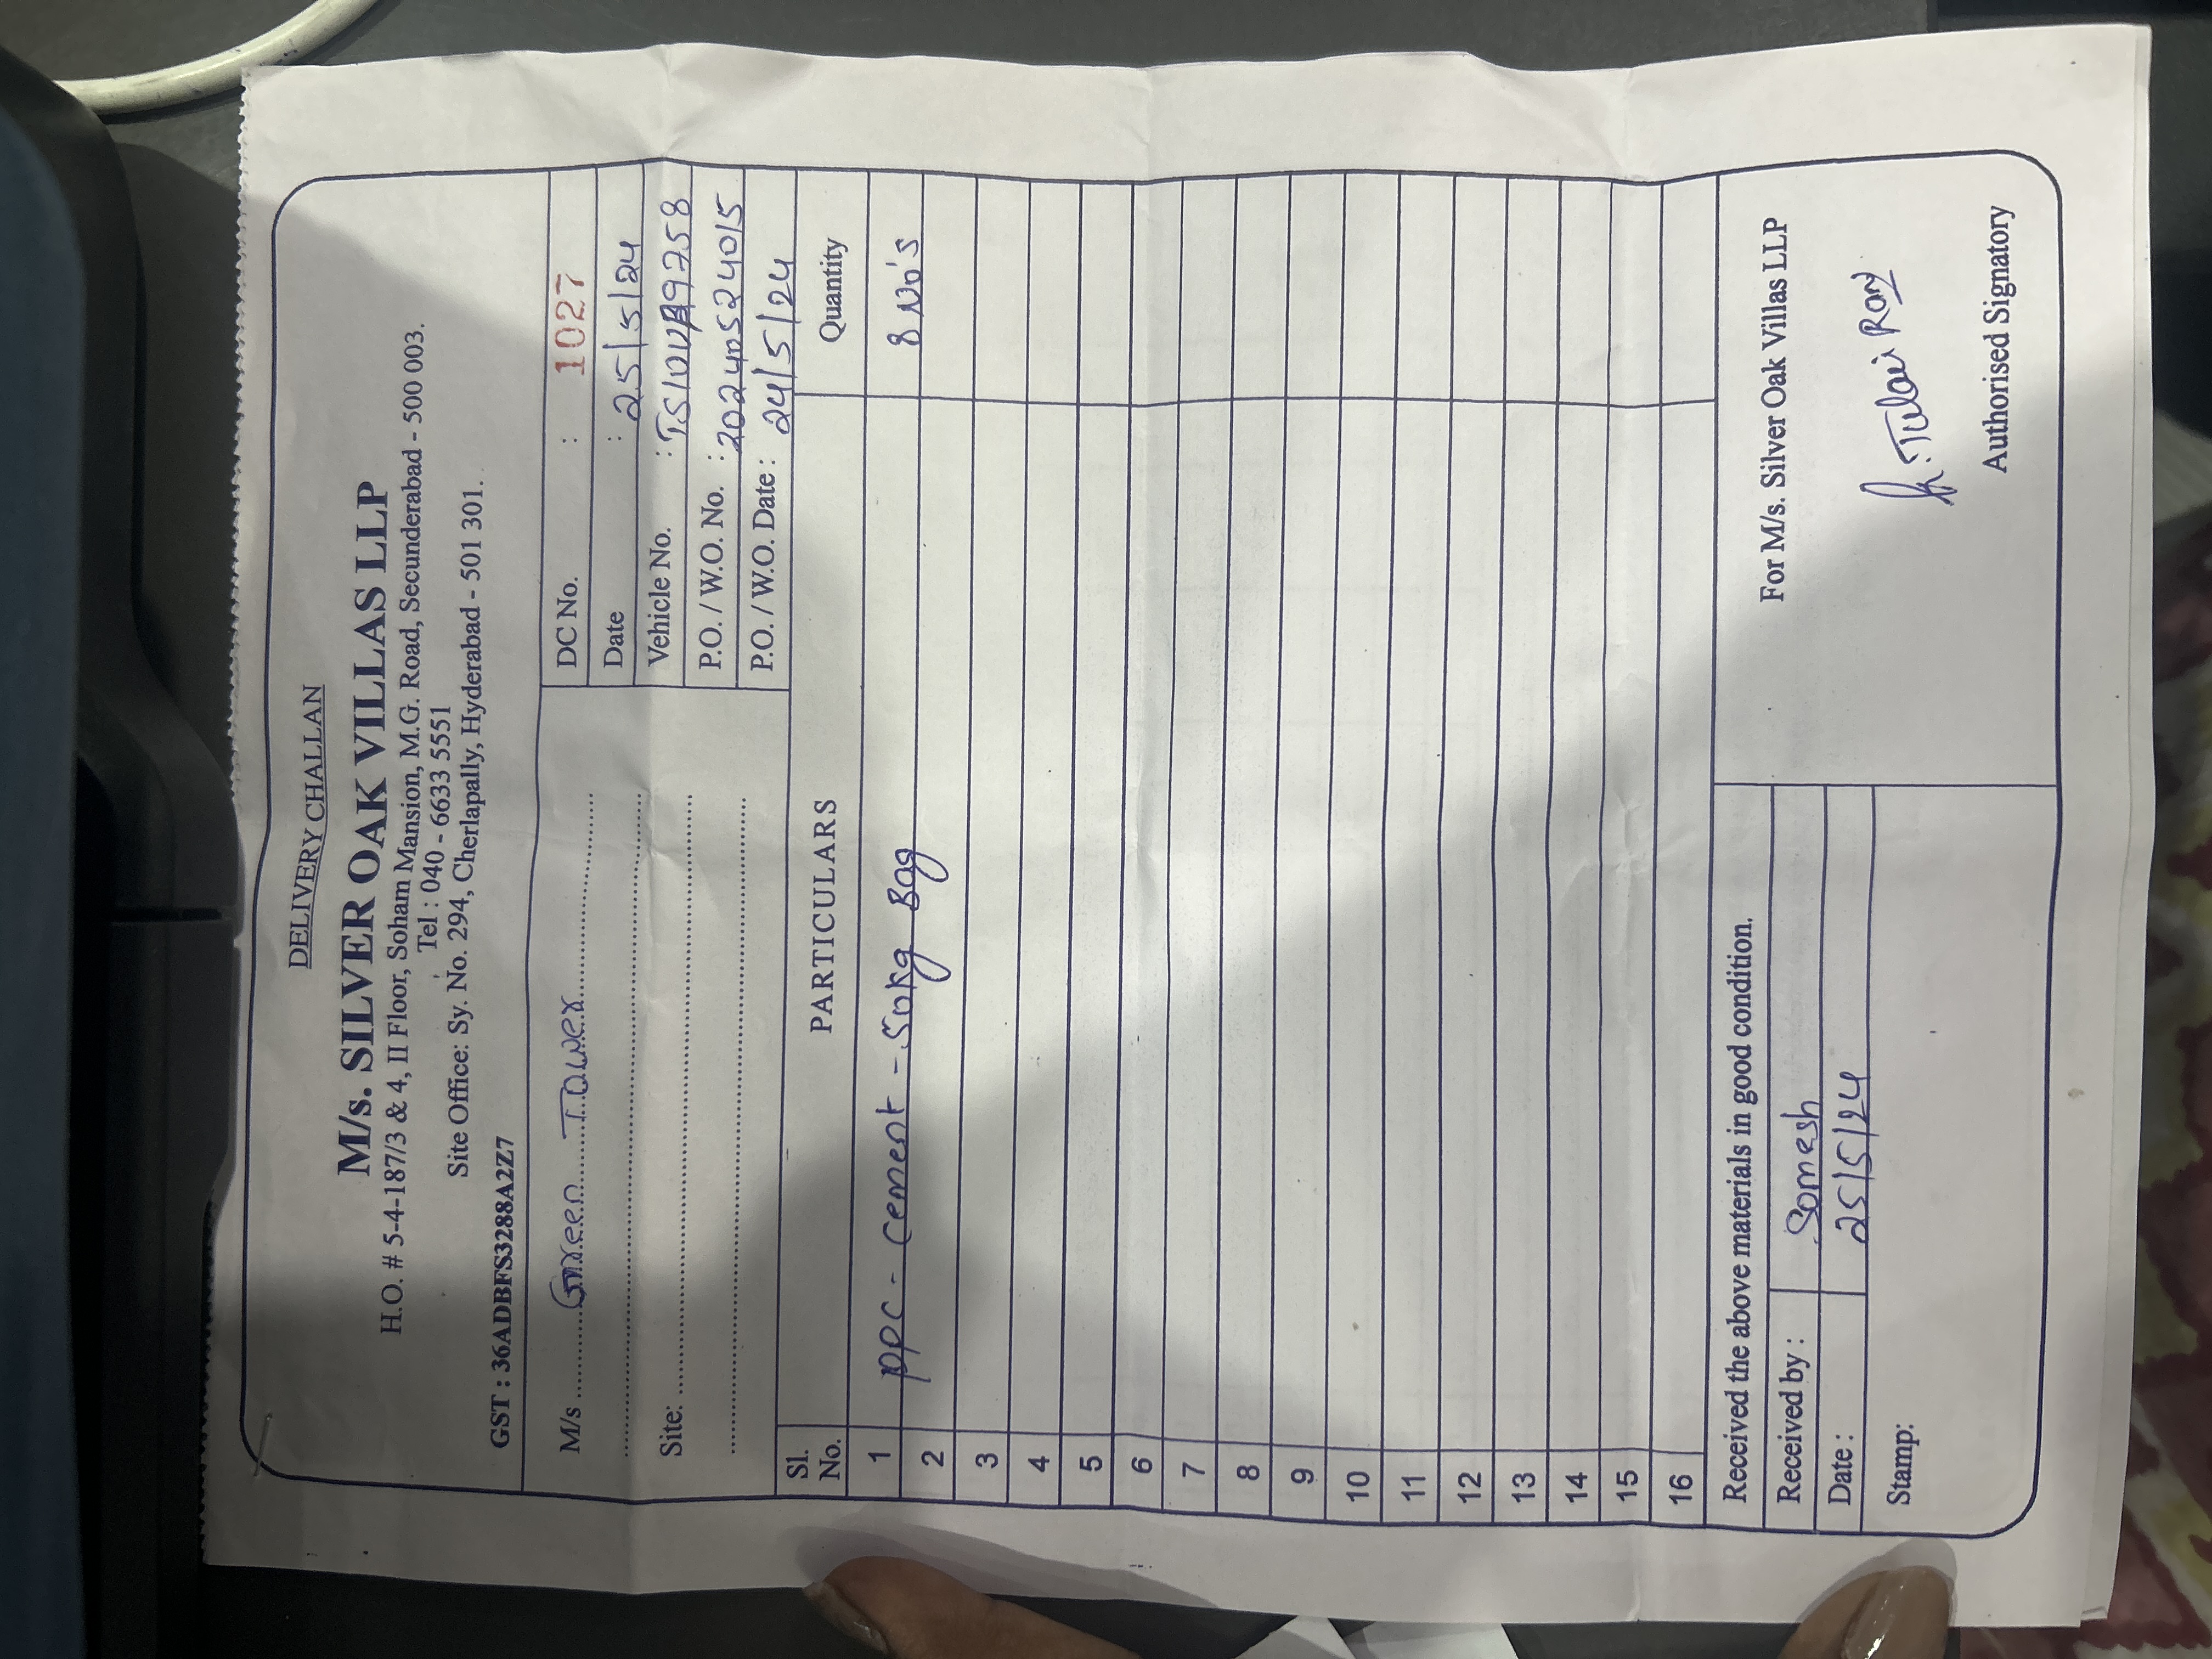 DELIVERY CHALLAN
M/s. SILVER OAK VILLAS LLP
H.O. # 5-4-187/3 & 4, II Floor, Soham Mansion, M.G. Road, Secunderabad - 500 003.
Tel : 040 - 6633 5551
Site Office: Sy. No. 294, Cherlapally, Hyderabad - 501 301.
GST : 36ADBFS3288A2Z7
M/s Green Tower
Site:
DC No. : 1027
Date : 25/5/24
Vehicle No. :
P.O. / W.O. No. : 20240524015
P.O. / W.O. Date : 24/5/24
Sl. No. PARTICULARS Quantity
1 PPC - cement - 50kg Bag 8 No's
2
3
4
5
6
7
8
9
10
11
12
13
14
15
16
Received the above materials in good condition.
Received by : Somesh
Date : 25/5/24
Stamp:
For M/s. Silver Oak Villas LLP
Authorised Signatory